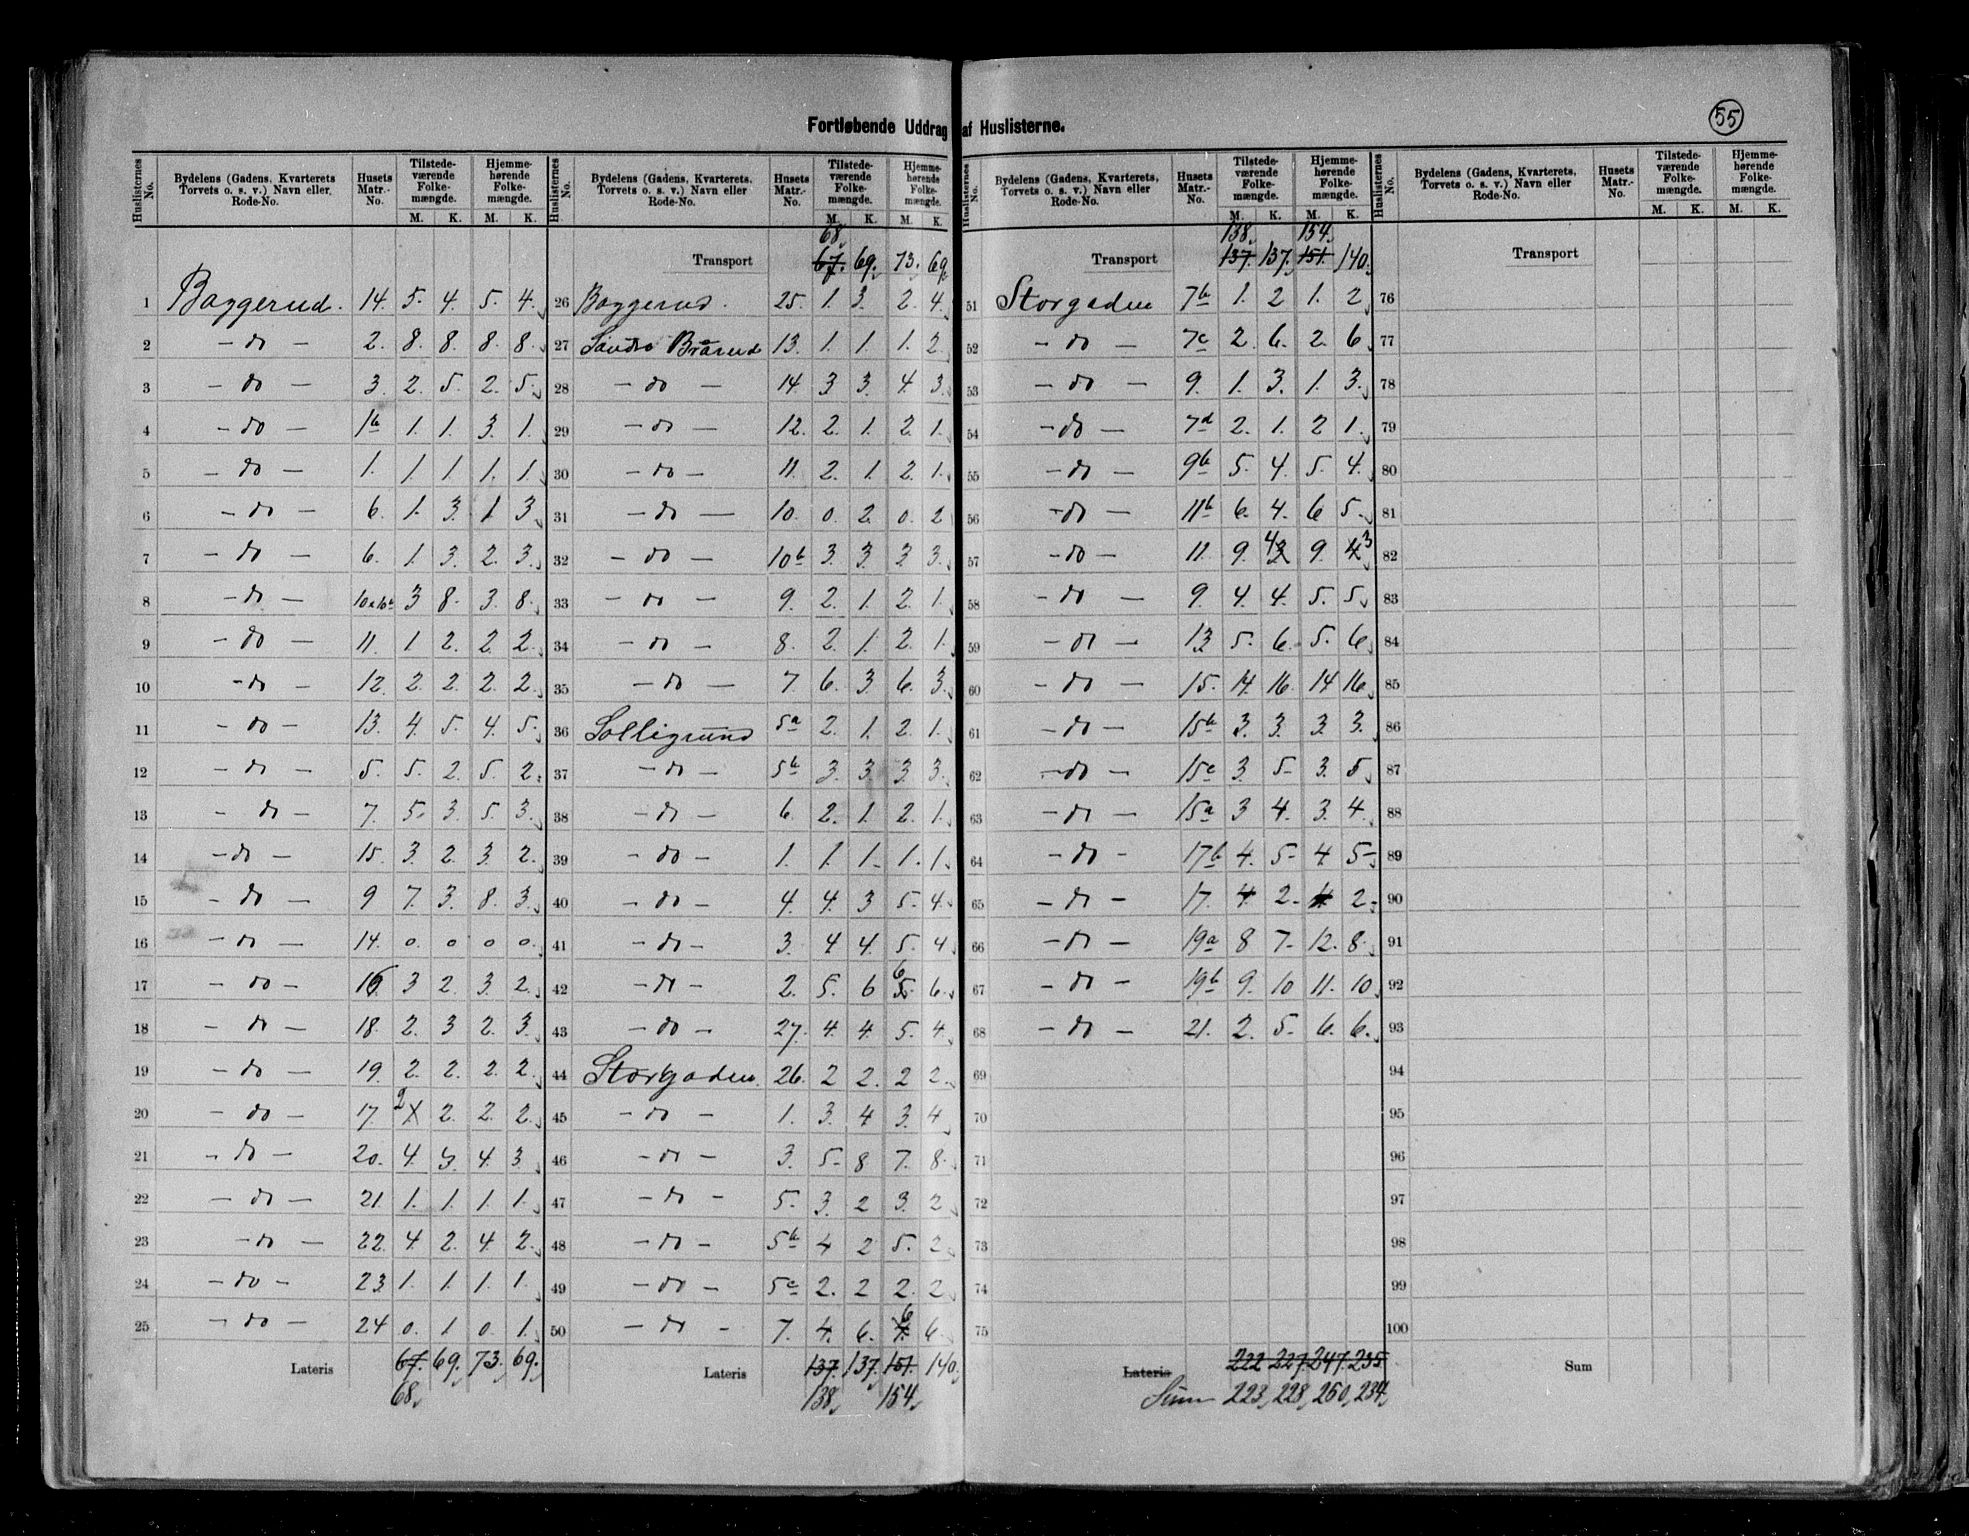 Fortløbende Uddrag af Huslisterne.
55
Huslisternes No. Bydelens (Gadens, Kvarterets Torvets o. s. v.) Navn eller Rode-No. Husets Matr.-No. Tilstede-værende Folke-mængde. M. K. Hjemme-hørende Folke-mængde. M. K.
1 Baggerud. 14. 5. 4. 5. 4.
2 - do - 2. 8. 8. 8. 8.
3 - do - 3. 2. 5. 2. 5.
4 - do - 1b 1. 1. 3. 1.
5 - do - 1. 1. 1. 1. 1.
6 - do - 6. 1. 3. 1 3.
7 - do - 6. 1. 3. 2. 3.
8 - do - 3 8. 3. 8.
9 - do - 11. 1 2. 2. 2.
10 - do - 12. 2. 2. 2. 2.
11 - do - 13. 4. 5. 4. 5.
12 - do - 5. 5. 2. 5. 2.
13 - do - 7. 5. 3. 5. 3.
14 - do - 15. 3. 2. 3. 2.
15 - do - 9 7. 3. 8. 3.
16 - do - 14. 0. 0 0 0.
17 - do - 3 2. 3. 2.
18 - do - 18. 2. 3 2. 3.
19 - do - 19. 2. 2. 2. 2.
20 - do - 17. 2 2. 2. 2.
21 - do - 20. 4. 3. 4. 3.
22 - do - 21. 1. 1. 1. 1.
23 - do - 22. 4. 2. 4. 2.
24 - do - 23. 1. 1. 1. 1.
25 - do - 24 0. 1 0. 1.
Lateris 67. 69. 73. 69.
68.
Huslisternes No. Bydelens (Gadens, Kvarterets, Torvets o. s. v.) Navn eller Rode-No. Husets Matr.-No. Tilstede-værende Folke-mængde. M. K. Hjemme-hørende Folke-mængde. M. K.
68
Transport 67. 69. 73. 69.
26 Baggerud. 25. 1. 3. 2. 4.
27 Søndre Brårud 13. 1. 1. 1. 2.
28 - do - 14 3 3. 4. 3.
29 - do - 12. 2. 1. 2. 1.
30 - do - 11. 2. 1. 2. 1.
31 - do - 10. 0. 2. 0. 2
32 - do - 10b 3. 3. 3 3.
33 - do - 9. 2. 1. 2. 1.
34 - do - 8. 2. 1. 2. 1.
35 - do - 7. 6. 3 6. 3.
36 Solligrund 5a 2. 1. 2. 1.
37 - do - 5b 3. 3. 3. 3.
38 - do - 6. 2. 1. 2. 1.
39 - do - 1. 1. 1. 1. 1.
40 - do - 4. 4. 3 5. 4.
41 - do - 3. 4 4. 5. 4
42 - do - 2. 5. 6 6 5. 6.
43 - do - 27. 4. 4. 5. 4
44 Storgaden. 26. 2 2. 2 2.
45 - do - 1. 3. 4 3. 4
46 - do - 3. 5. 8 7. 8.
47 - do - 5. 3. 2 3. 2
48 - do - 5b 4 2 5. 2
49 - do - 5c 2. 2 2. 2
50 - do - 7. 4. 6. 6 6
Lateris 137. 137. 151. 140.
138. 154.
Huslisternes No. Bydelens (Gadens, Kvarterets, Torvets o. s. v.) Navn eller Rode-No. Husets Matr.-No. Tilstede-værende Folke-mængde. M. K. Hjemme-hørende Folke-mængde. M. K.
138. 154.
Transport 137. 137. 151. 140.
51 Storgaden 7b 1. 2 1. 2
52 - do - 7c 2. 6. 2. 6
53 - do - 9. 1. 3. 1. 3.
54 - do - 7d 2. 1. 2 1.
55 - do - 9b 5. 4. 5. 4.
56 - do - 11b 6. 4. 6 5.
57 - do - 11. 9. 4 3 9. 4 3
58 - do - 9. 4. 4. 5. 5.
59 - do - 13 5. 6. 5. 6
60 - do - 15. 14. 16. 14 16
61 - do - 15b 3. 3. 3. 3.
62 - do - 15c 3. 5. 3. 5
63 - do - 15a 3 4. 3. 4.
64 - do - 17b 4. 5. 4. 5.
65 - do - 17. 4 2. 4. 2.
66 - do - 19a 8 7. 12. 8.
67 - do - 19b 9. 10 11. 10.
68 - do - 21. 2. 5. 6. 6.
69
70
71
72
73
74
75
Lateris 222 227. 247. 235
Sum 223, 228, 250, 234,
Huslisternes No. Bydelens (Gadens, Kvarterets, Torvets o. s. v.) Navn eller Rode-No. Husets Matr.-No. Tilstede-værende Folke-mængde. M. K. Hjemme-hørende Folke-mængde. M. K.
Transport
76
77
78
79
80
81
82
83
84
85
86
87
88
89
90
91
92
93
94
95
96
97
98
99
100
Sum